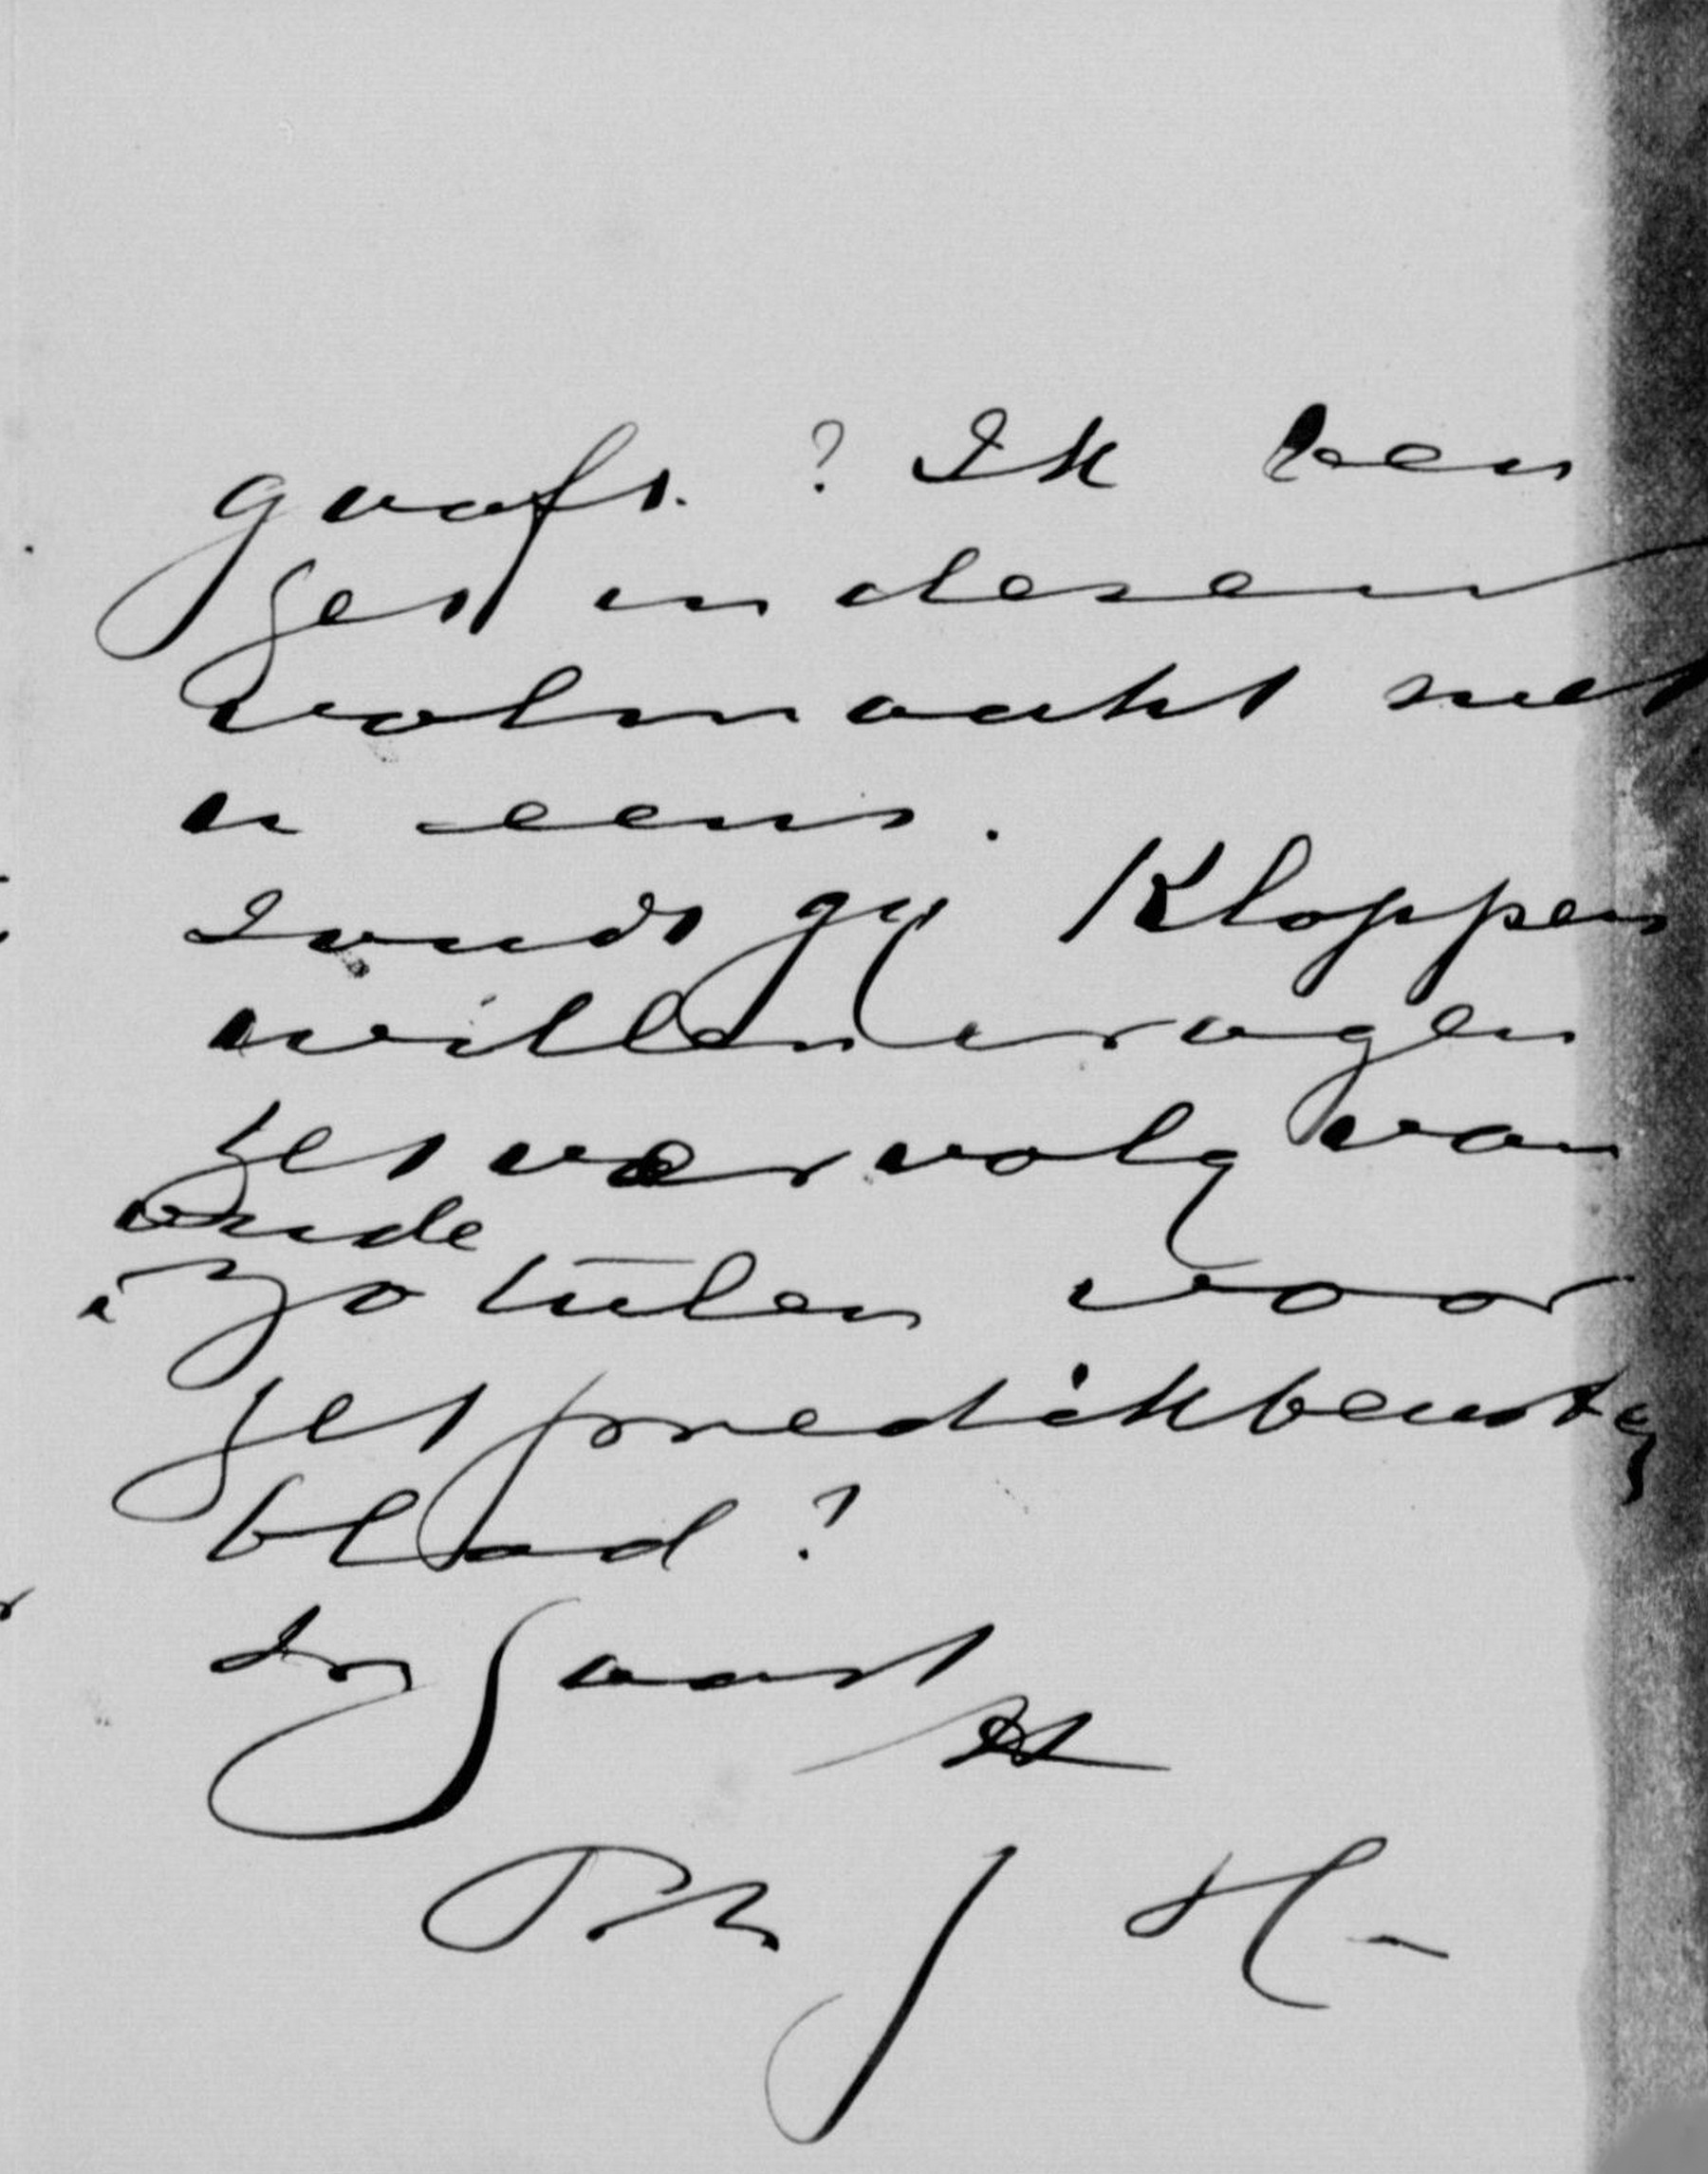 graaft. ? Ik ben
het in dezen
volmaakt met
u eens.
Zoudt gij Kloppers
willen vragen
het vervolg van
oude
titulen voor
het predikbeurten
blad?
In haast
tt
Ph J H-